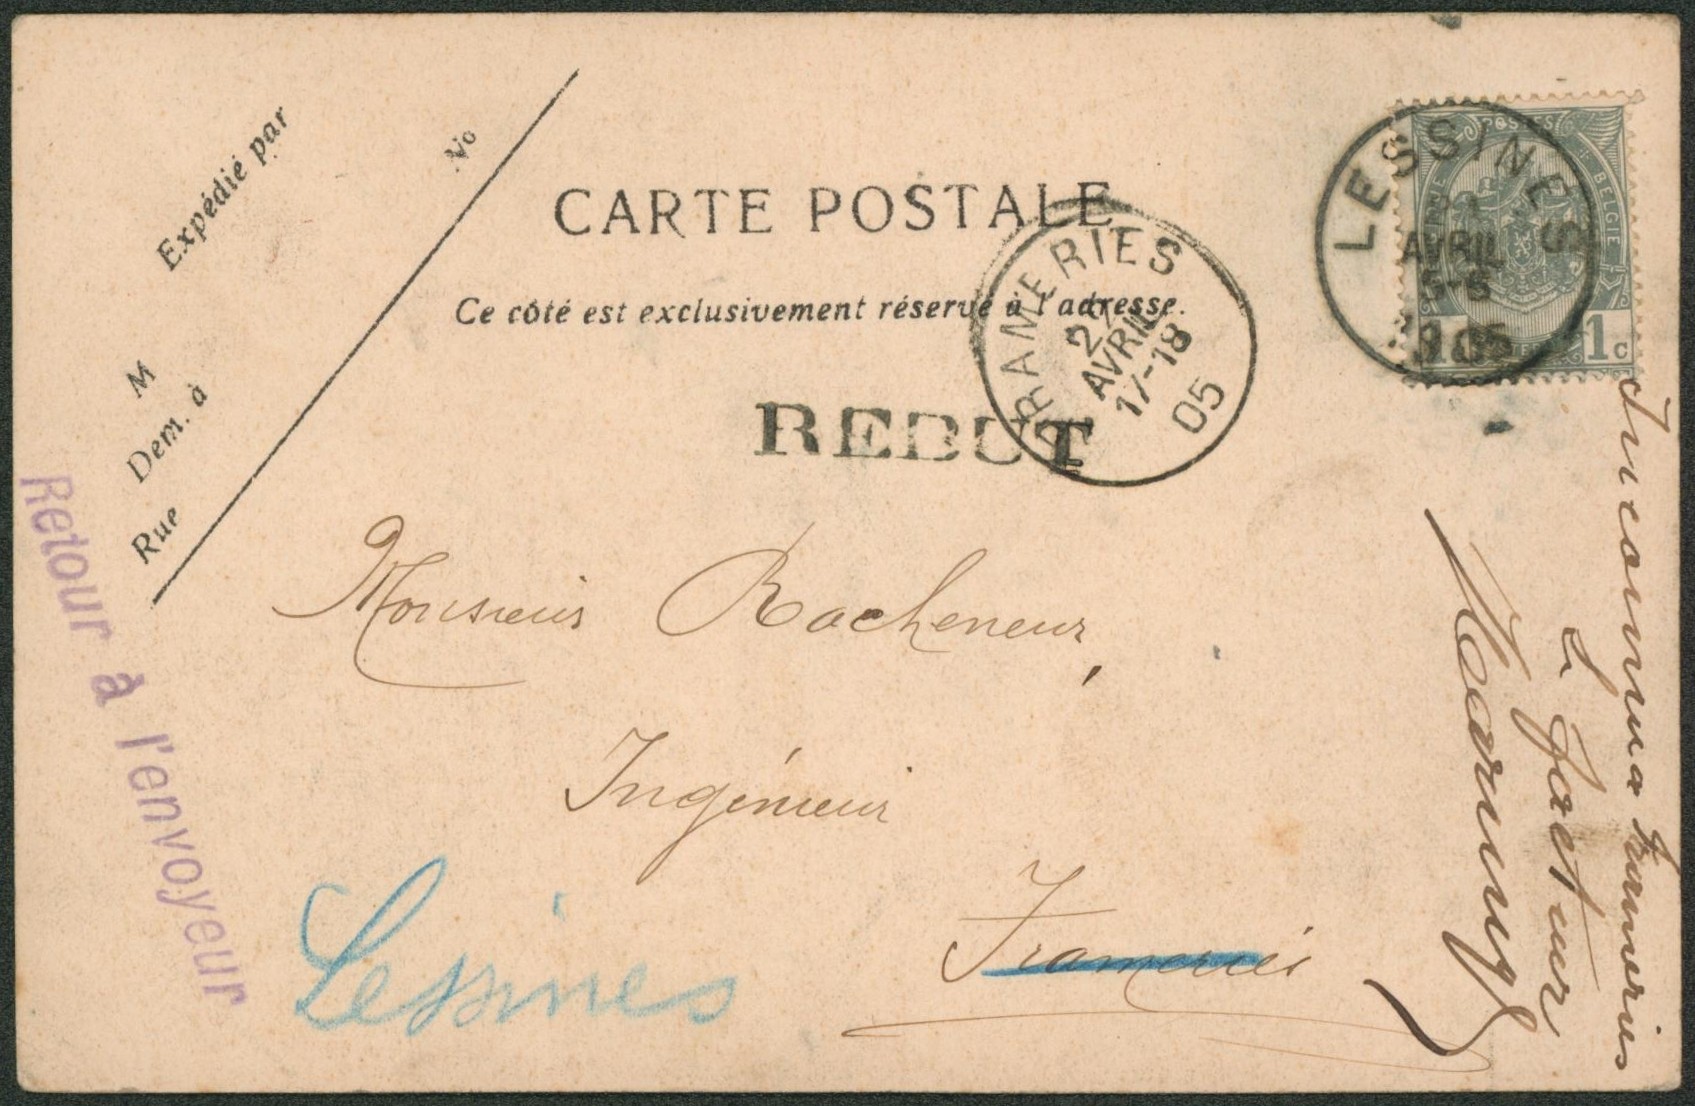 Expédié par
No
M
Dem. à
Rue
CARTE POSTALE
Ce côté est exclusivement réservé à l'adresse.
POSTES
BELGIE
1c
LESSINES
AVRIL
1905
FRAMERIES
AVRIL
17-18
05
REBUT
Monsieur Racheneur,
Ingénieur
Frameries
Lessines
Retour à l'envoyeur
Inconnu à Frameries
Le facteur